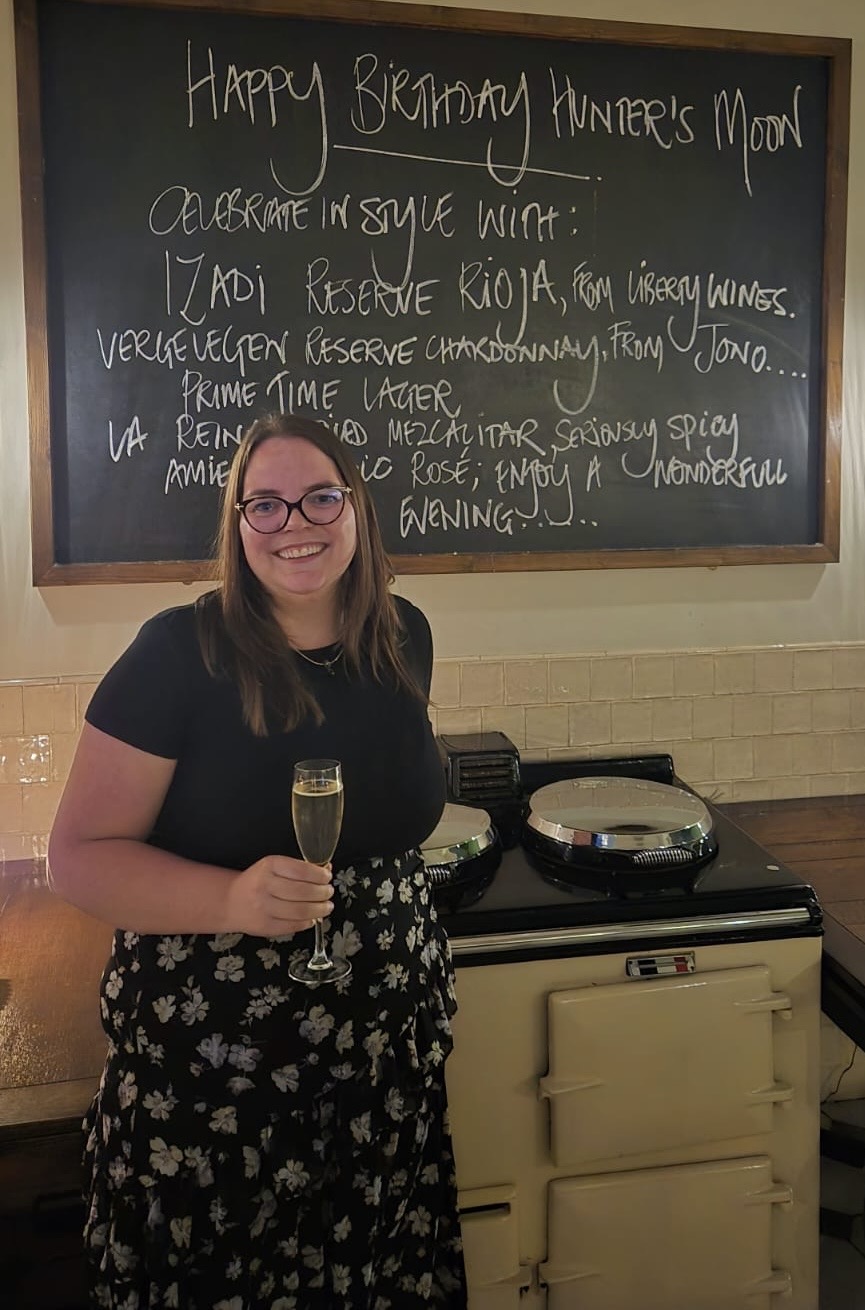 HAPPY BIRTHDAY HUNTER'S MOON
CELEBRATE IN STYLE WITH:
IZADI RESERVE RIOJA, FROM LIBERTY WINES.
VERGELEGEN RESERVE CHARDONNAY, FROM JONO....
PRIME TIME LAGER
LA MEZCALITAR, SERIOUSLY SPICY
ROSÉ; ENJOY A WONDERFULL
EVENING.....